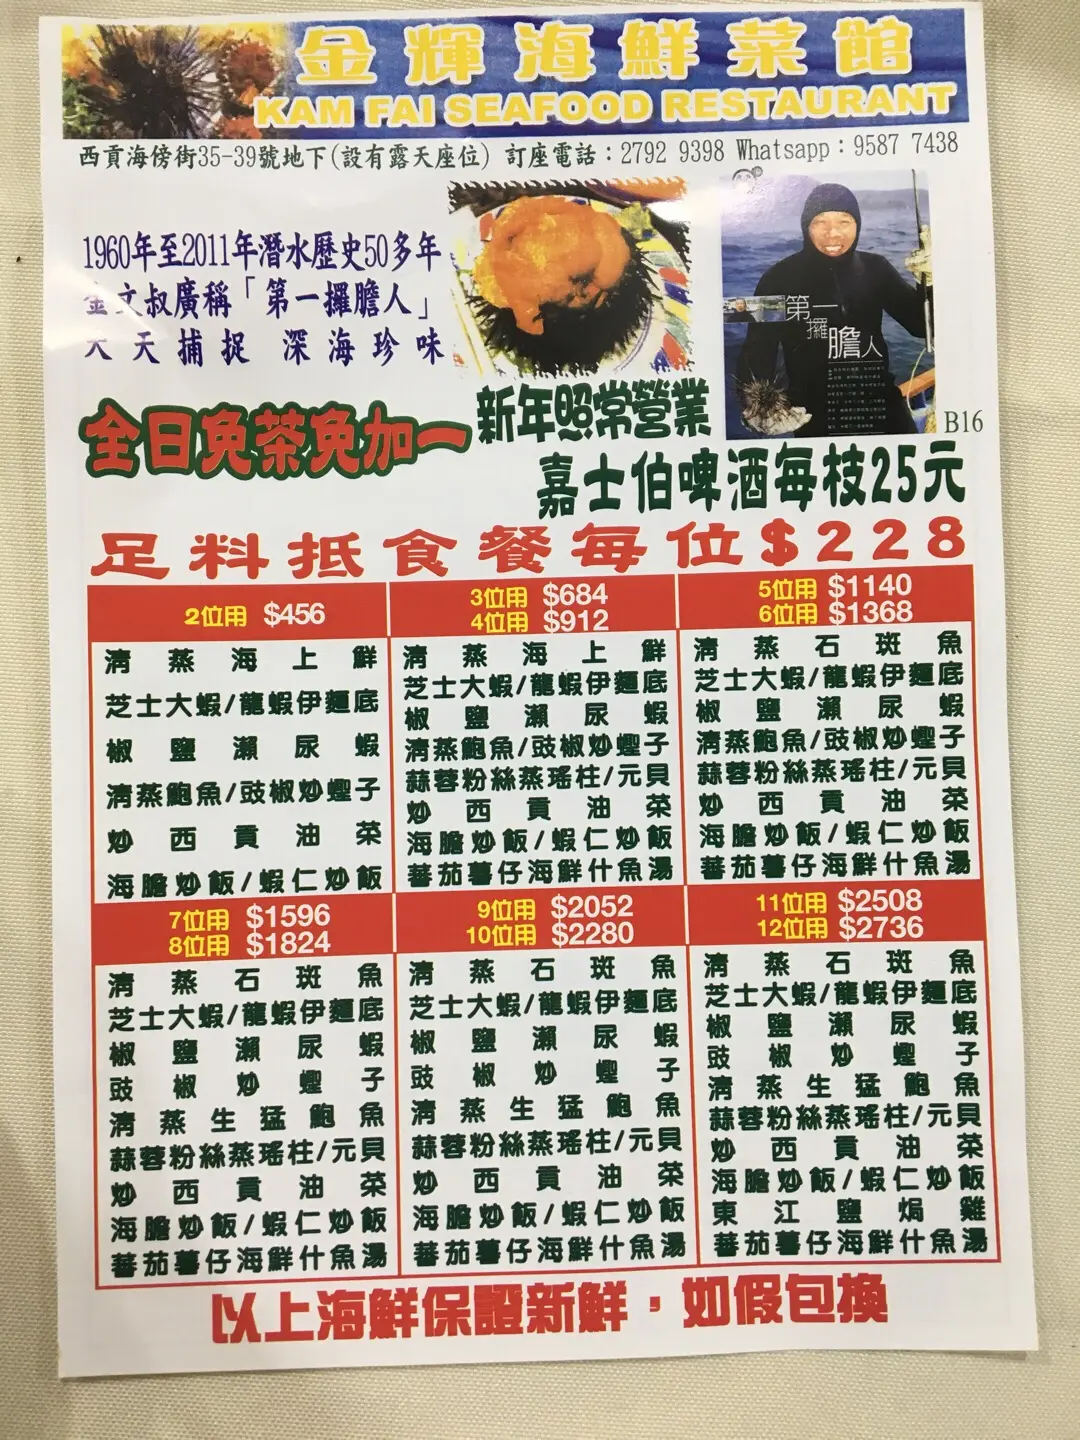 金輝海鮮菜館
KAM FAI SEAFOOD RESTAURANT
西貢海傍街35-39號地下(設有露天座位) 訂座電話：2792 9398 Whatsapp：9587 7438
1960年至2011年潛水歷史50多年
金文叔廣稱「第一攞膽人」
天天捕捉 深海珍味
第一
攞
膽人
B16
全日免茶免加一
新年照常營業
嘉士伯啤酒每枝25元
足料抵食餐每位$228
2位用 $456
清蒸海上鮮
芝士大蝦/龍蝦伊麵底
椒鹽瀨尿蝦
清蒸鮑魚/豉椒炒蟶子
炒西貢油菜
海膽炒飯/蝦仁炒飯
3位用 $684
4位用 $912
清蒸海上鮮
芝士大蝦/龍蝦伊麵底
椒鹽瀨尿蝦
清蒸鮑魚/豉椒炒蟶子
蒜蓉粉絲蒸瑤柱/元貝
炒西貢油菜
海膽炒飯/蝦仁炒飯
蕃茄薯仔海鮮什魚湯
5位用 $1140
6位用 $1368
清蒸石斑魚
芝士大蝦/龍蝦伊麵底
椒鹽瀨尿蝦
清蒸鮑魚/豉椒炒蟶子
蒜蓉粉絲蒸瑤柱/元貝
炒西貢油菜
海膽炒飯/蝦仁炒飯
蕃茄薯仔海鮮什魚湯
7位用 $1596
8位用 $1824
清蒸石斑魚
芝士大蝦/龍蝦伊麵底
椒鹽瀨尿蝦
豉椒炒蟶子
清蒸生猛鮑魚
蒜蓉粉絲蒸瑤柱/元貝
炒西貢油菜
海膽炒飯/蝦仁炒飯
蕃茄薯仔海鮮什魚湯
9位用 $2052
10位用 $2280
清蒸石斑魚
芝士大蝦/龍蝦伊麵底
椒鹽瀨尿蝦
豉椒炒蟶子
清蒸生猛鮑魚
蒜蓉粉絲蒸瑤柱/元貝
炒西貢油菜
海膽炒飯/蝦仁炒飯
蕃茄薯仔海鮮什魚湯
11位用 $2508
12位用 $2736
清蒸石斑魚
芝士大蝦/龍蝦伊麵底
椒鹽瀨尿蝦
豉椒炒蟶子
清蒸生猛鮑魚
蒜蓉粉絲蒸瑤柱/元貝
炒西貢油菜
海膽炒飯/蝦仁炒飯
東江鹽焗雞
蕃茄薯仔海鮮什魚湯
以上海鮮保證新鮮，如假包換